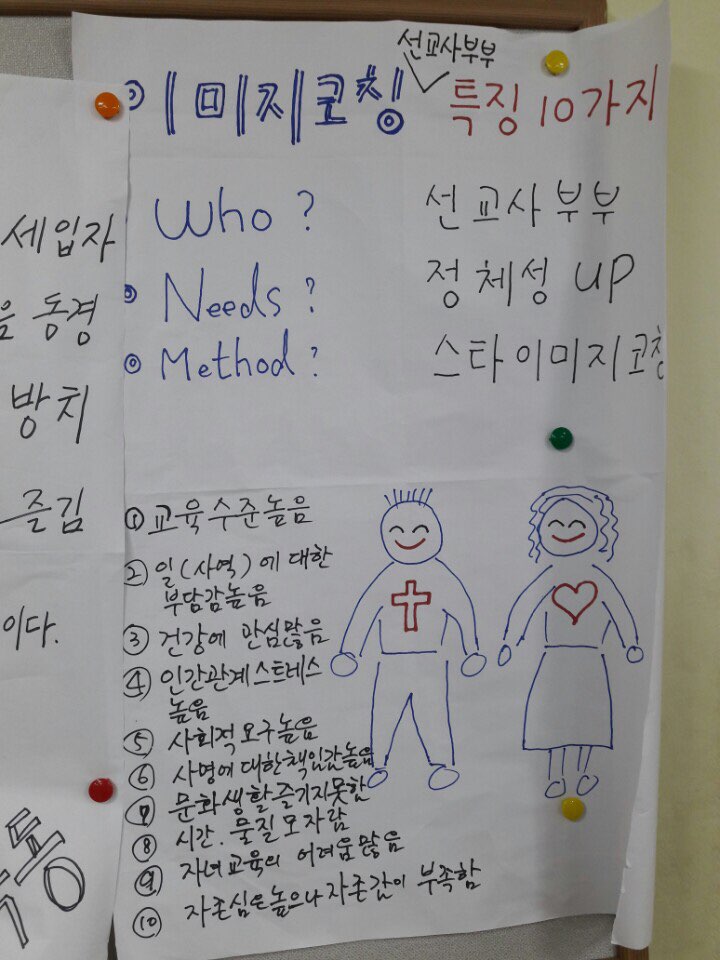 선교사부부
이미지코칭 특징 10가지
Who? 선교사부부
Needs? 정체성 UP
Method? 스타이미지코칭
① 교육수준높음
② 일(사역)에 대한
부담감높음
③ 건강에 관심많음
④ 인간관계스트레스
높음
⑤ 사회적요구높음
⑥ 사명에대한책임감높음
⑦ 문화생활즐기지못함
⑧ 시간.물질모자람
⑨ 자녀교육의 어려움많음
⑩ 자존심은높으나자존감이 부족함
세입자
동경
방치
즐김
이다.
동